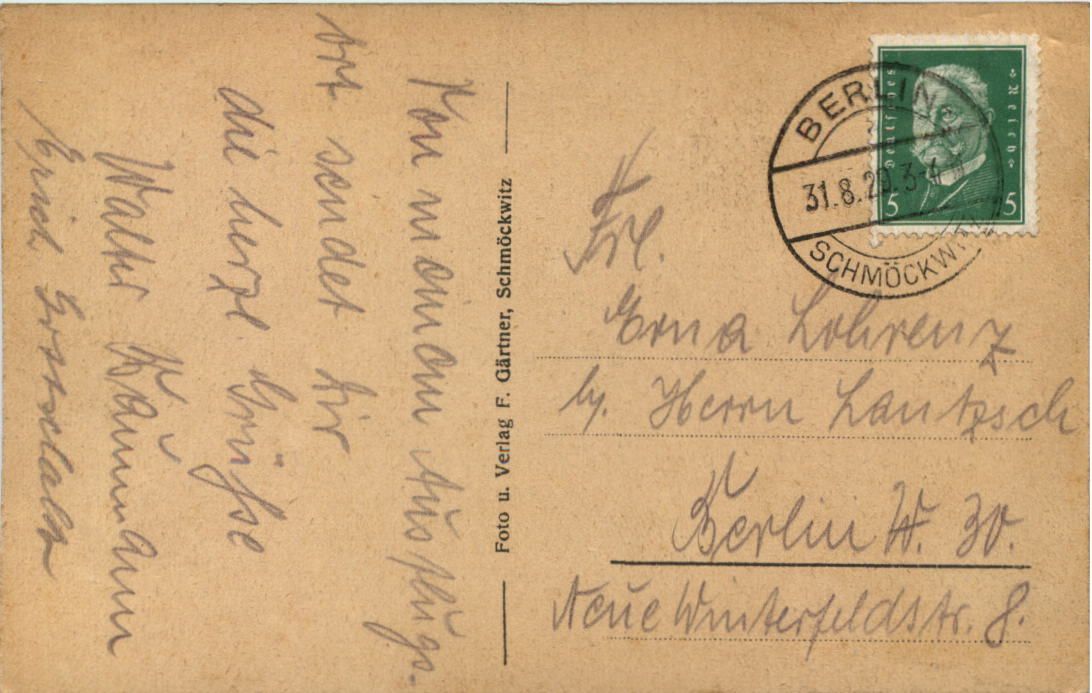 Von meinem Ausflugs-
ort sendet Dir
die herzl. Grüsse
Walter Baumann
Erich
Foto u. Verlag F. Gärtner, Schmöckwitz
Deutsches Reich
5 5
BERLIN
31.8.29.3-4
SCHMÖCKWITZ
Frl.
Erna Lohrenz
b/. Herrn Lantzsch
Berlin W. 30.
Neue Winterfeldstr. 8.